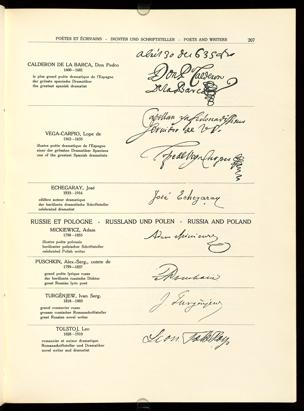 POÈTES ET ÉCRIVAINS - DICHTER UND SCHRIFTSTELLER - POETS AND WRITERS
207
CALDERON DE LA BARCA, Don Pedro
1600–1681
le plus grand poète dramatique de l'Espagne
der grösste spanische Dramatiker
the greatest spanish dramatist
Don Po Calderon
de la Barca
VEGA-CARPIO, Lope de
1562–1635
illustre poète dramatique de l'Espagne
einer der grössten Dramatiker Spaniens
one of the greatest Spanish dramatists
Lope de Vega Carpio
ECHEGARAY, José
célèbre auteur dramatique
der berühmte dramatische Schriftsteller
celebrated dramatist
José Echegaray
RUSSIE ET POLOGNE - RUSSLAND UND POLEN - RUSSIA AND POLAND
MICKIEWICZ, Adam
1798–1855
illustre poète polonais
berühmter polnischer Schriftsteller
celebrated Polish writer
PUSCHKIN, Alex.-Serg., comte de
1799–1837
grand poète lyrique russe
der berühmte russische Dichter
great Russian lyric poet
TURGÉNJEW, Ivan Serg.
1818–1883
grand romancier russe
grosser russischer Romanschriftsteller
great Russian novel writer
TOLSTOJ, Leo
1828–1910
romancier et auteur dramatique
Romanschriftsteller und Dramatiker
novel writer and dramatist